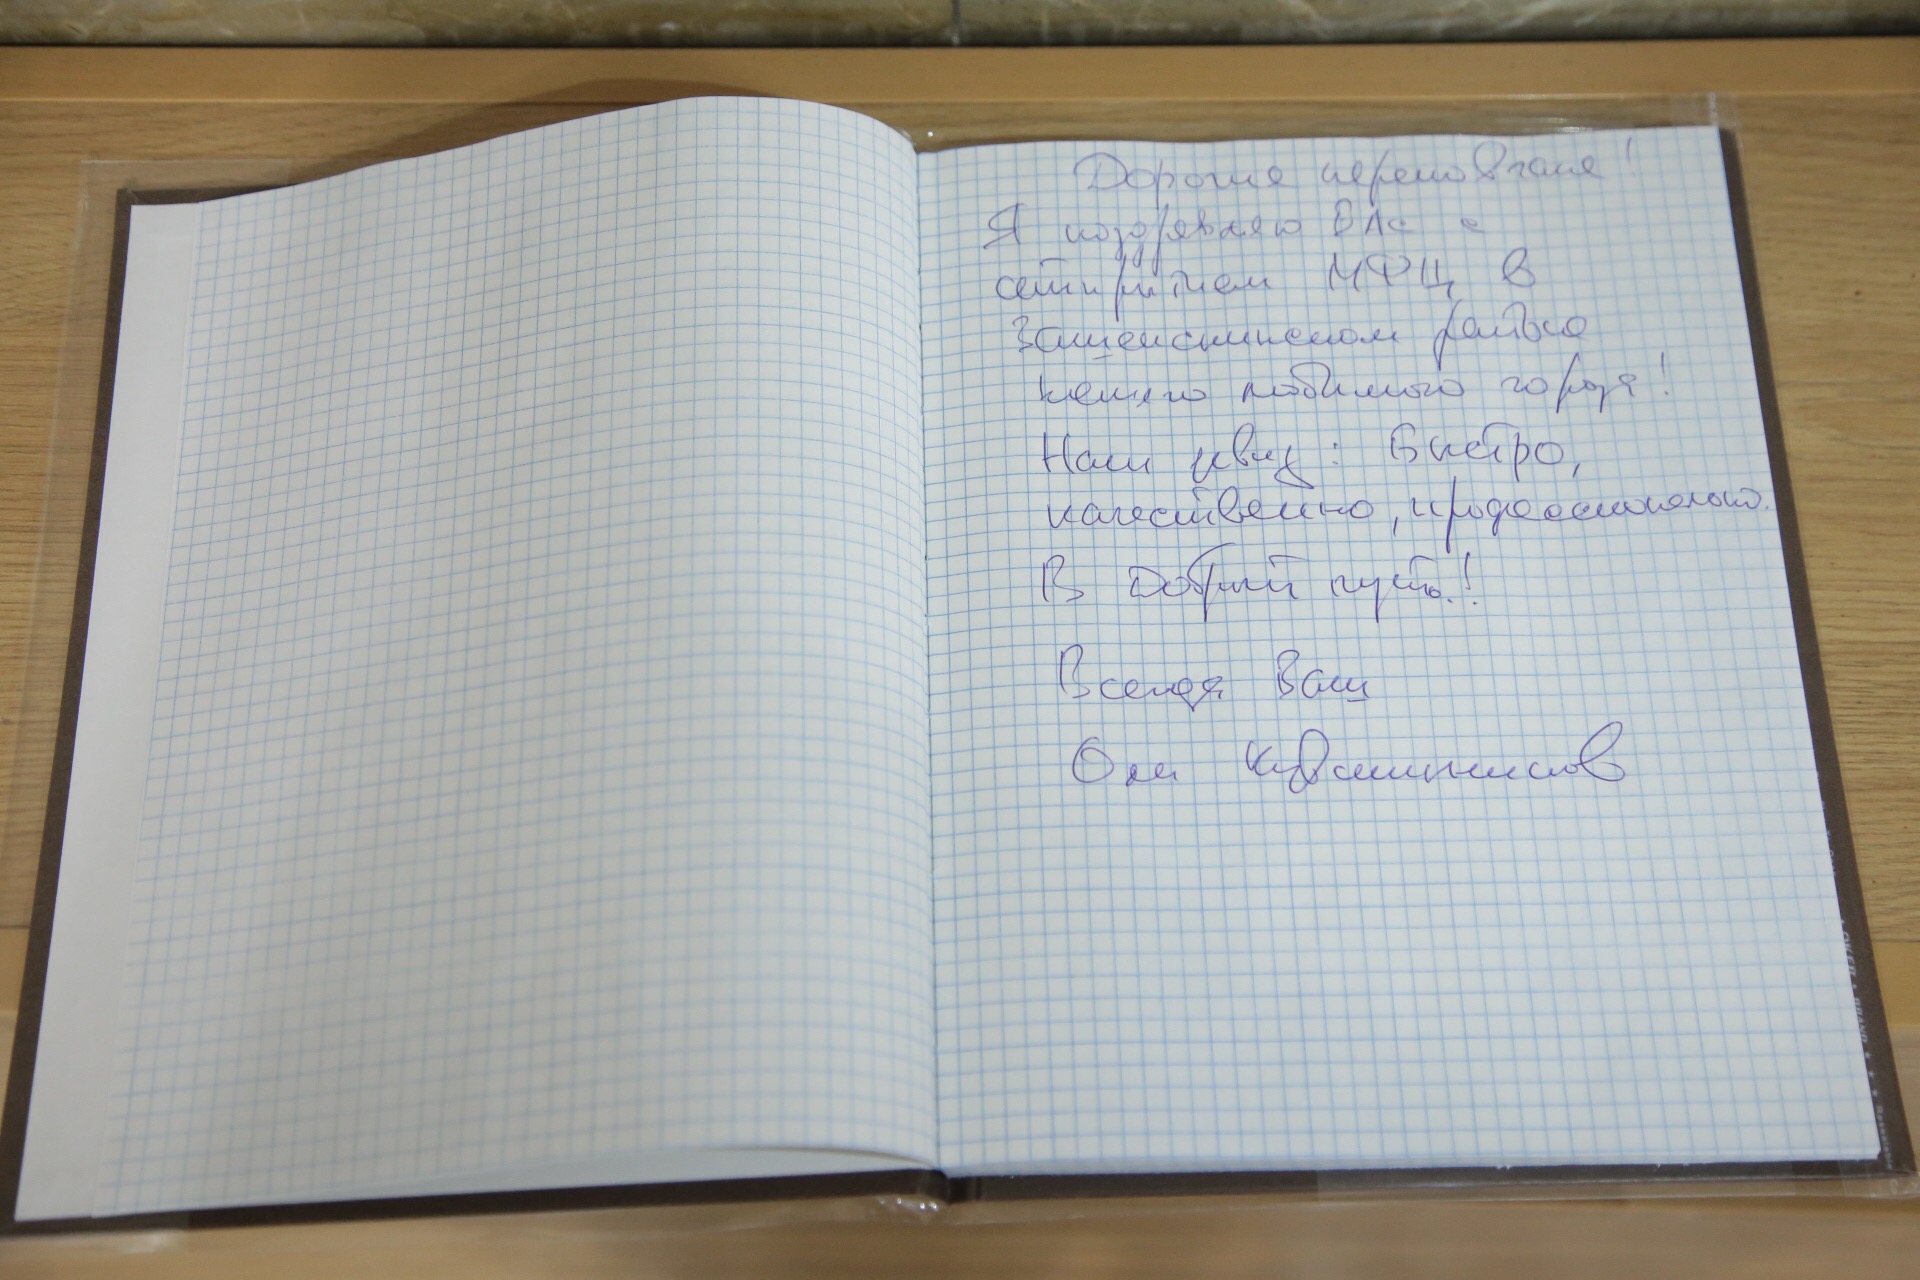 Дорогие череповчане!
Я поздравляю Вас с
открытием МФЦ в
Зашекснинском районе
нашего любимого города!
Наш девиз: Быстро,
качественно, профессионально.
В Добрый путь!
Всегда Ваш
Олег Кувшинников